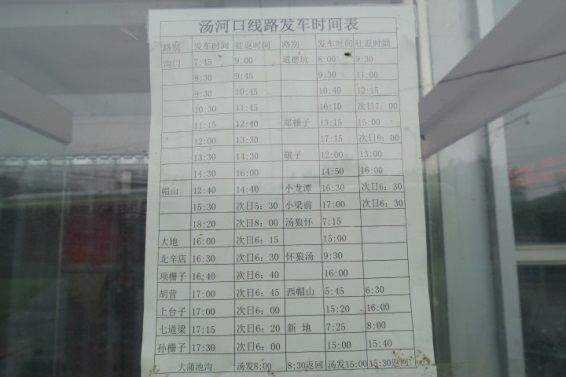 汤河口线路发车时间表
路别 发车时间 往返时间 路别 发车时间 往返时间
沟门 7:45 9:00 道德坑 8:00 9:30
8:30 9:45 9:30 11:00
9:30 10:45 10:40 12:15
10:30 11:45 16:10 次日7:00
11:15 12:40 郑栅子 13:15 15:00
12:00 13:30 17:15 次日6:00
13:30 14:30 碾子 12:00 13:00
14:30 16:00 14:50 16:00
帽山 12:40 14:40 小龙潭 16:30 次日6:30
15:30 次日5:30 小梁前 17:00 次日6:30
18:20 次日8:00 汤狼怀 7:15
大地 16:00 次日6:15 15:00
北辛店 16:30 次日6:30 怀狼汤 9:30
项栅子 16:40 次日6:40 16:00
胡营 17:00 次日6:45 西帽山 5:45 6:30
上台子 17:00 次日6:00 15:20 16:00
七道梁 17:15 次日6:20 新地 7:25 8:00
孙栅子 17:30 次日6:00 15:00 15:40
大蒲池沟 汤发8:00 8:30返回 汤发15:00 15:30返回